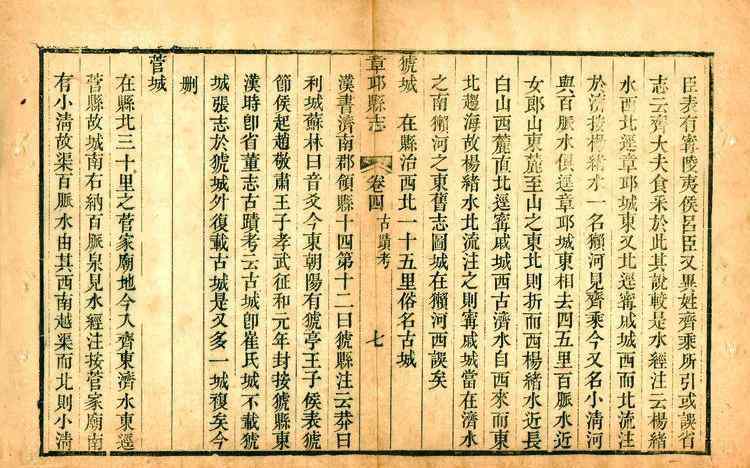 臣表有甯陵夷侯呂臣又異姓齊乘所引或誤省
志云齊大夫食采於此其說較是水經注云楊緒
水西北逕章邱城東又北逕甯戚城西而北流注
於濟按楊緒水一名獺河見齊乘今又名小清河
與百脈水俱逕章邱城東相去四五里百脈水近
女郎山東麓至山之東北則折而西楊緒水近長
白山西麓直北逕甯戚城西古濟水自西來而東
北趨海故楊緒水北流注之則甯戚城當在濟水
之南獺河之東舊志圖城在獺河西誤矣
猇城 在縣治西北一十五里俗名古城
章邱縣志 卷四 古蹟考 七
漢書濟南郡領縣十四第十二曰猇縣注云莽曰
利城蘇林曰音爻今東朝陽有猇亭王子侯表猇
節侯起趙敬肅王子孝武征和元年封按猇縣東
漢時卽省董志古蹟考云古城卽崔氏城不載猇
城張志於猇城外復載古城是又多一城複矣今
刪
菅城
在縣北三十里之菅家廟地今入齊東濟水東逕
菅縣故城南右納百脈泉見水經注按菅家廟南
有小清故渠百脈水由其西南越渠而北則小清